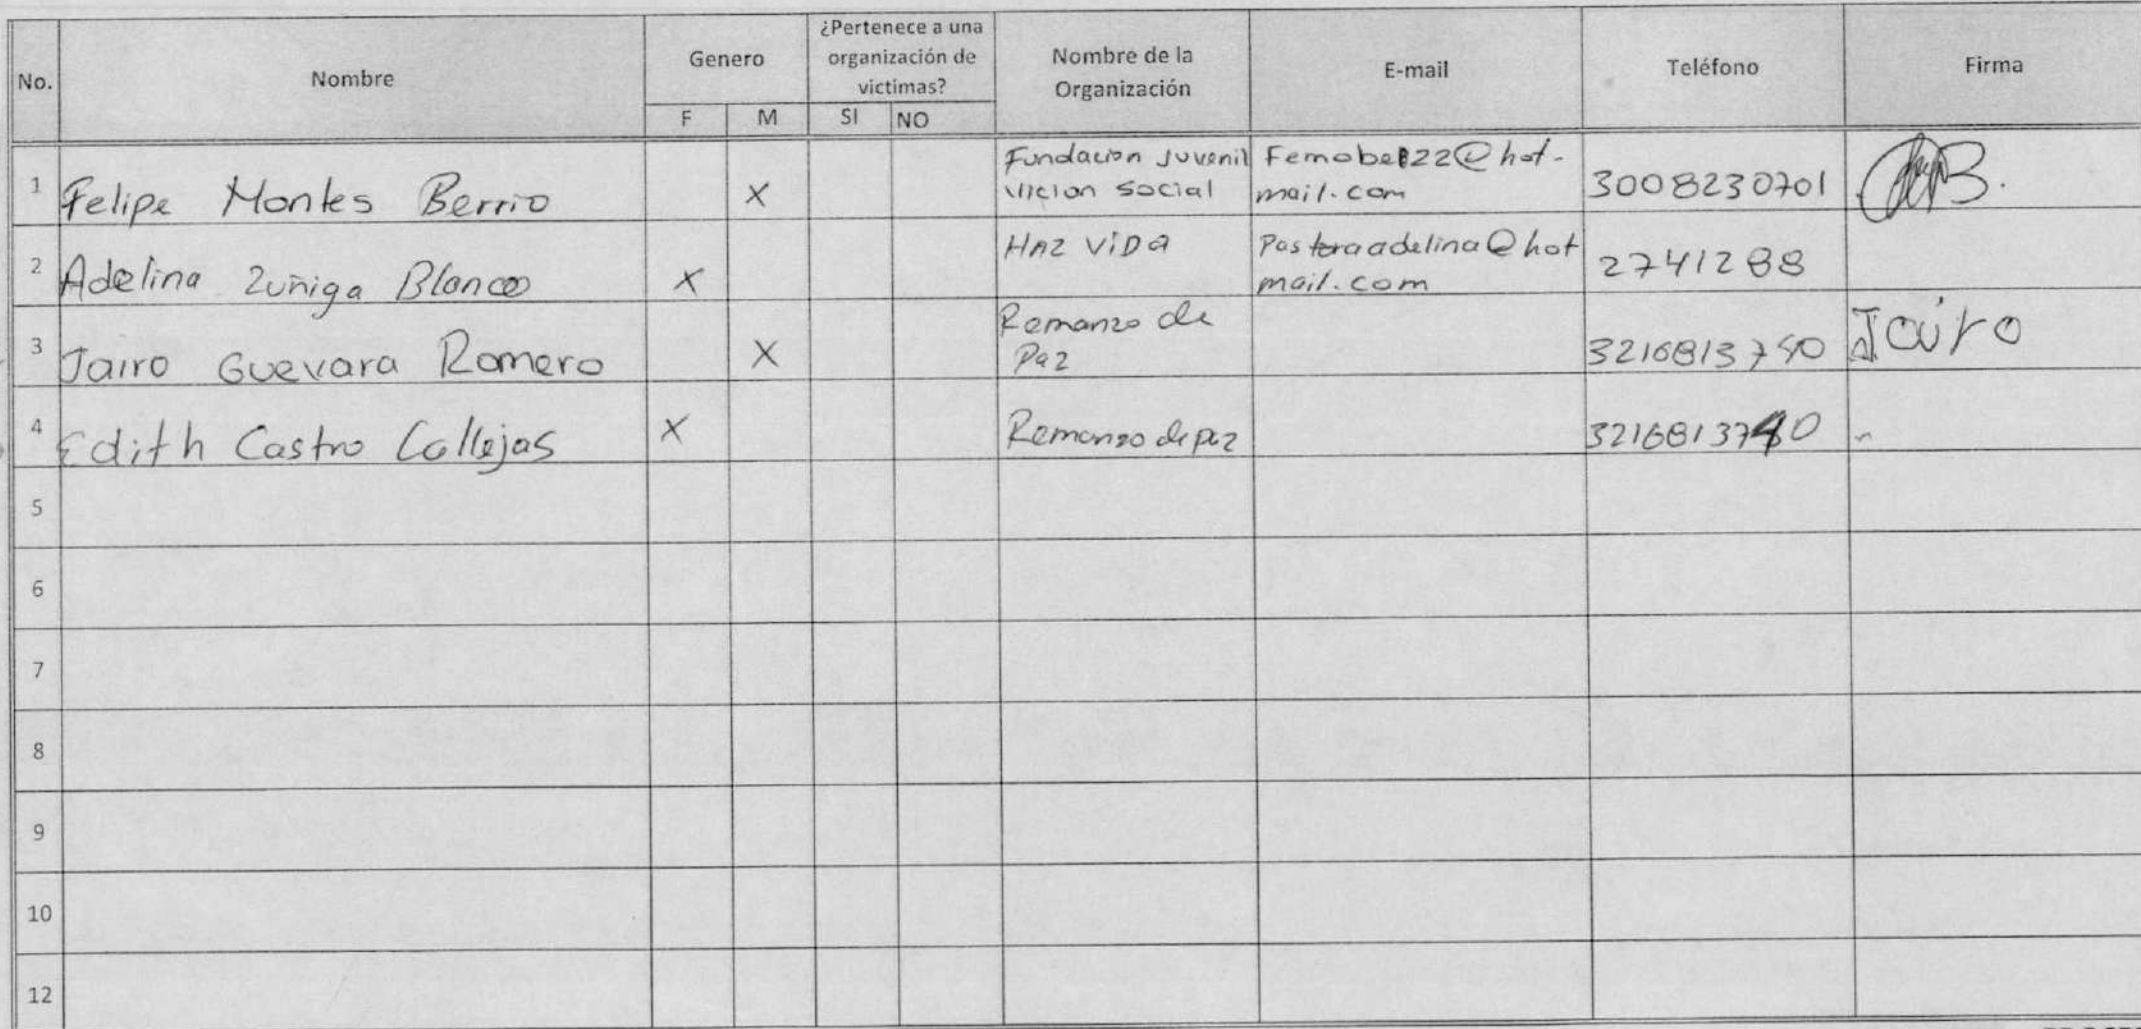 No.
Nombre
Genero
F M
¿Pertenece a una
organización de
victimas?
SI NO
Nombre de la
Organización
E-mail
Teléfono
Firma
1
Felipe Montes Berrio
X
Fundacion Juvenil
Vicion Social
hot-
mail.com
3008230701
2
Adelina Zuñiga Blanco
X
HAZ ViDa
Pastoraadelina@hot
mail.com
2741288
3
Jairo Guevara Romero
X
Remanzo de
Paz
3216813740
Jairo
4
Edith Castro Callejas
X
Remanzo de paz
3216813740
5
6
7
8
9
10
12